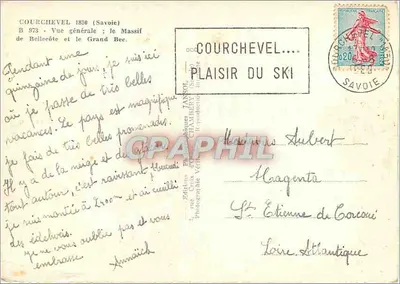 COURCHEVEL 1850 (Savoie)
B 973 - Vue générale ; le Massif
de Bellecôte et le Grand Bec.
Pendant une
quinzaine de jours, je suis ici
où je passe de très belles
vacances. Le pays est magnifique
je fais de très belles promenades.
Il y a de la neige et des
tout autour, c'est ravissant !
je suis montée à 2700 m et ai cueilli
des édelweis.
je ne vous oublie pas et vous
embrasse
Annaïck
COURCHEVEL....
PLAISIR DU SKI
0,20
COURCHEVEL
SAVOIE
CPAPHIL
Aubert
Magenta
St Etienne de Corcoué
Loire Atlantique